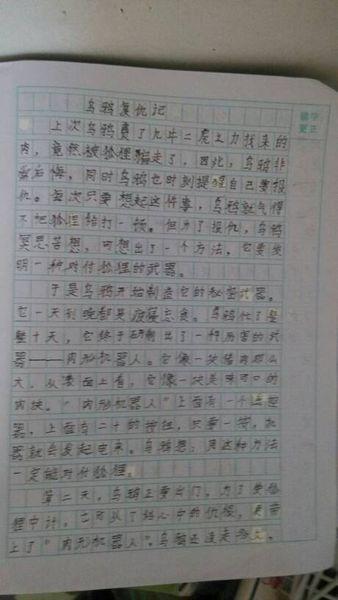 乌鸦复仇记
错字
更正
上次乌鸦费了九牛二虎之力找来的
肉，竟然被狐狸骗走了，因此，乌鸦非
常后悔，同时乌鸦也时刻提醒自己要报
仇。每次只要想起这件事，乌鸦就气得
不把狐狸给打一顿。但为了报仇，乌鸦
冥思苦想，可想出了一个方法，它要发
明一种对付狐狸的武器。
于是乌鸦开始制造它的秘密武器。
它一天到晚都是废寝忘食。乌鸦忙了整
整十天，它终于研制出了一种厉害的武
器——肉形机器人。它像一块猪肉那么
大，从表面上看，它像一块美味可口的
肉块。"肉形机器人"上面有一个遥控
器，上面有二十的按钮，只要一按，机
器就会发起电来。乌鸦想：用这种方法
一定能对付狐狸。
第二天，乌鸦正要出门，为了要狐
狸中计，它可从了心中的仇恨，是带
上了"肉形机器人"。乌鸦还没走